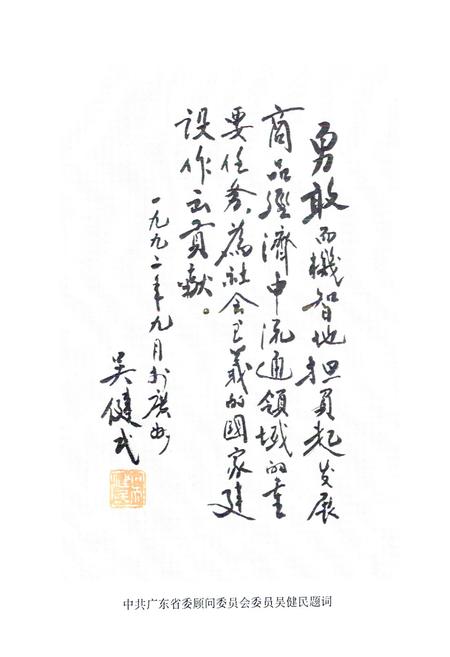 勇敢而機智地担負起发展
商品經濟中流通領域的重
要任务,為社会主义的國家建
設作出貢獻。
一九九二年九月於廣州
吴健民
中共广东省委顾问委员会委员吴健民题词